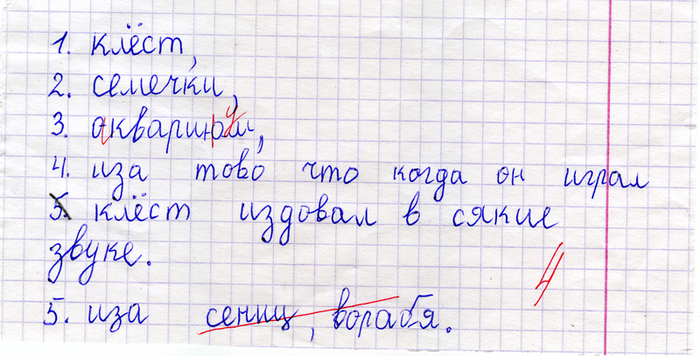 1. клёст,
2. семечки,
3. аквариум,
4. иза тово что когда он играл
5. клёст издовал в сякие
звуке.
4
5. иза сениц, ворабя.